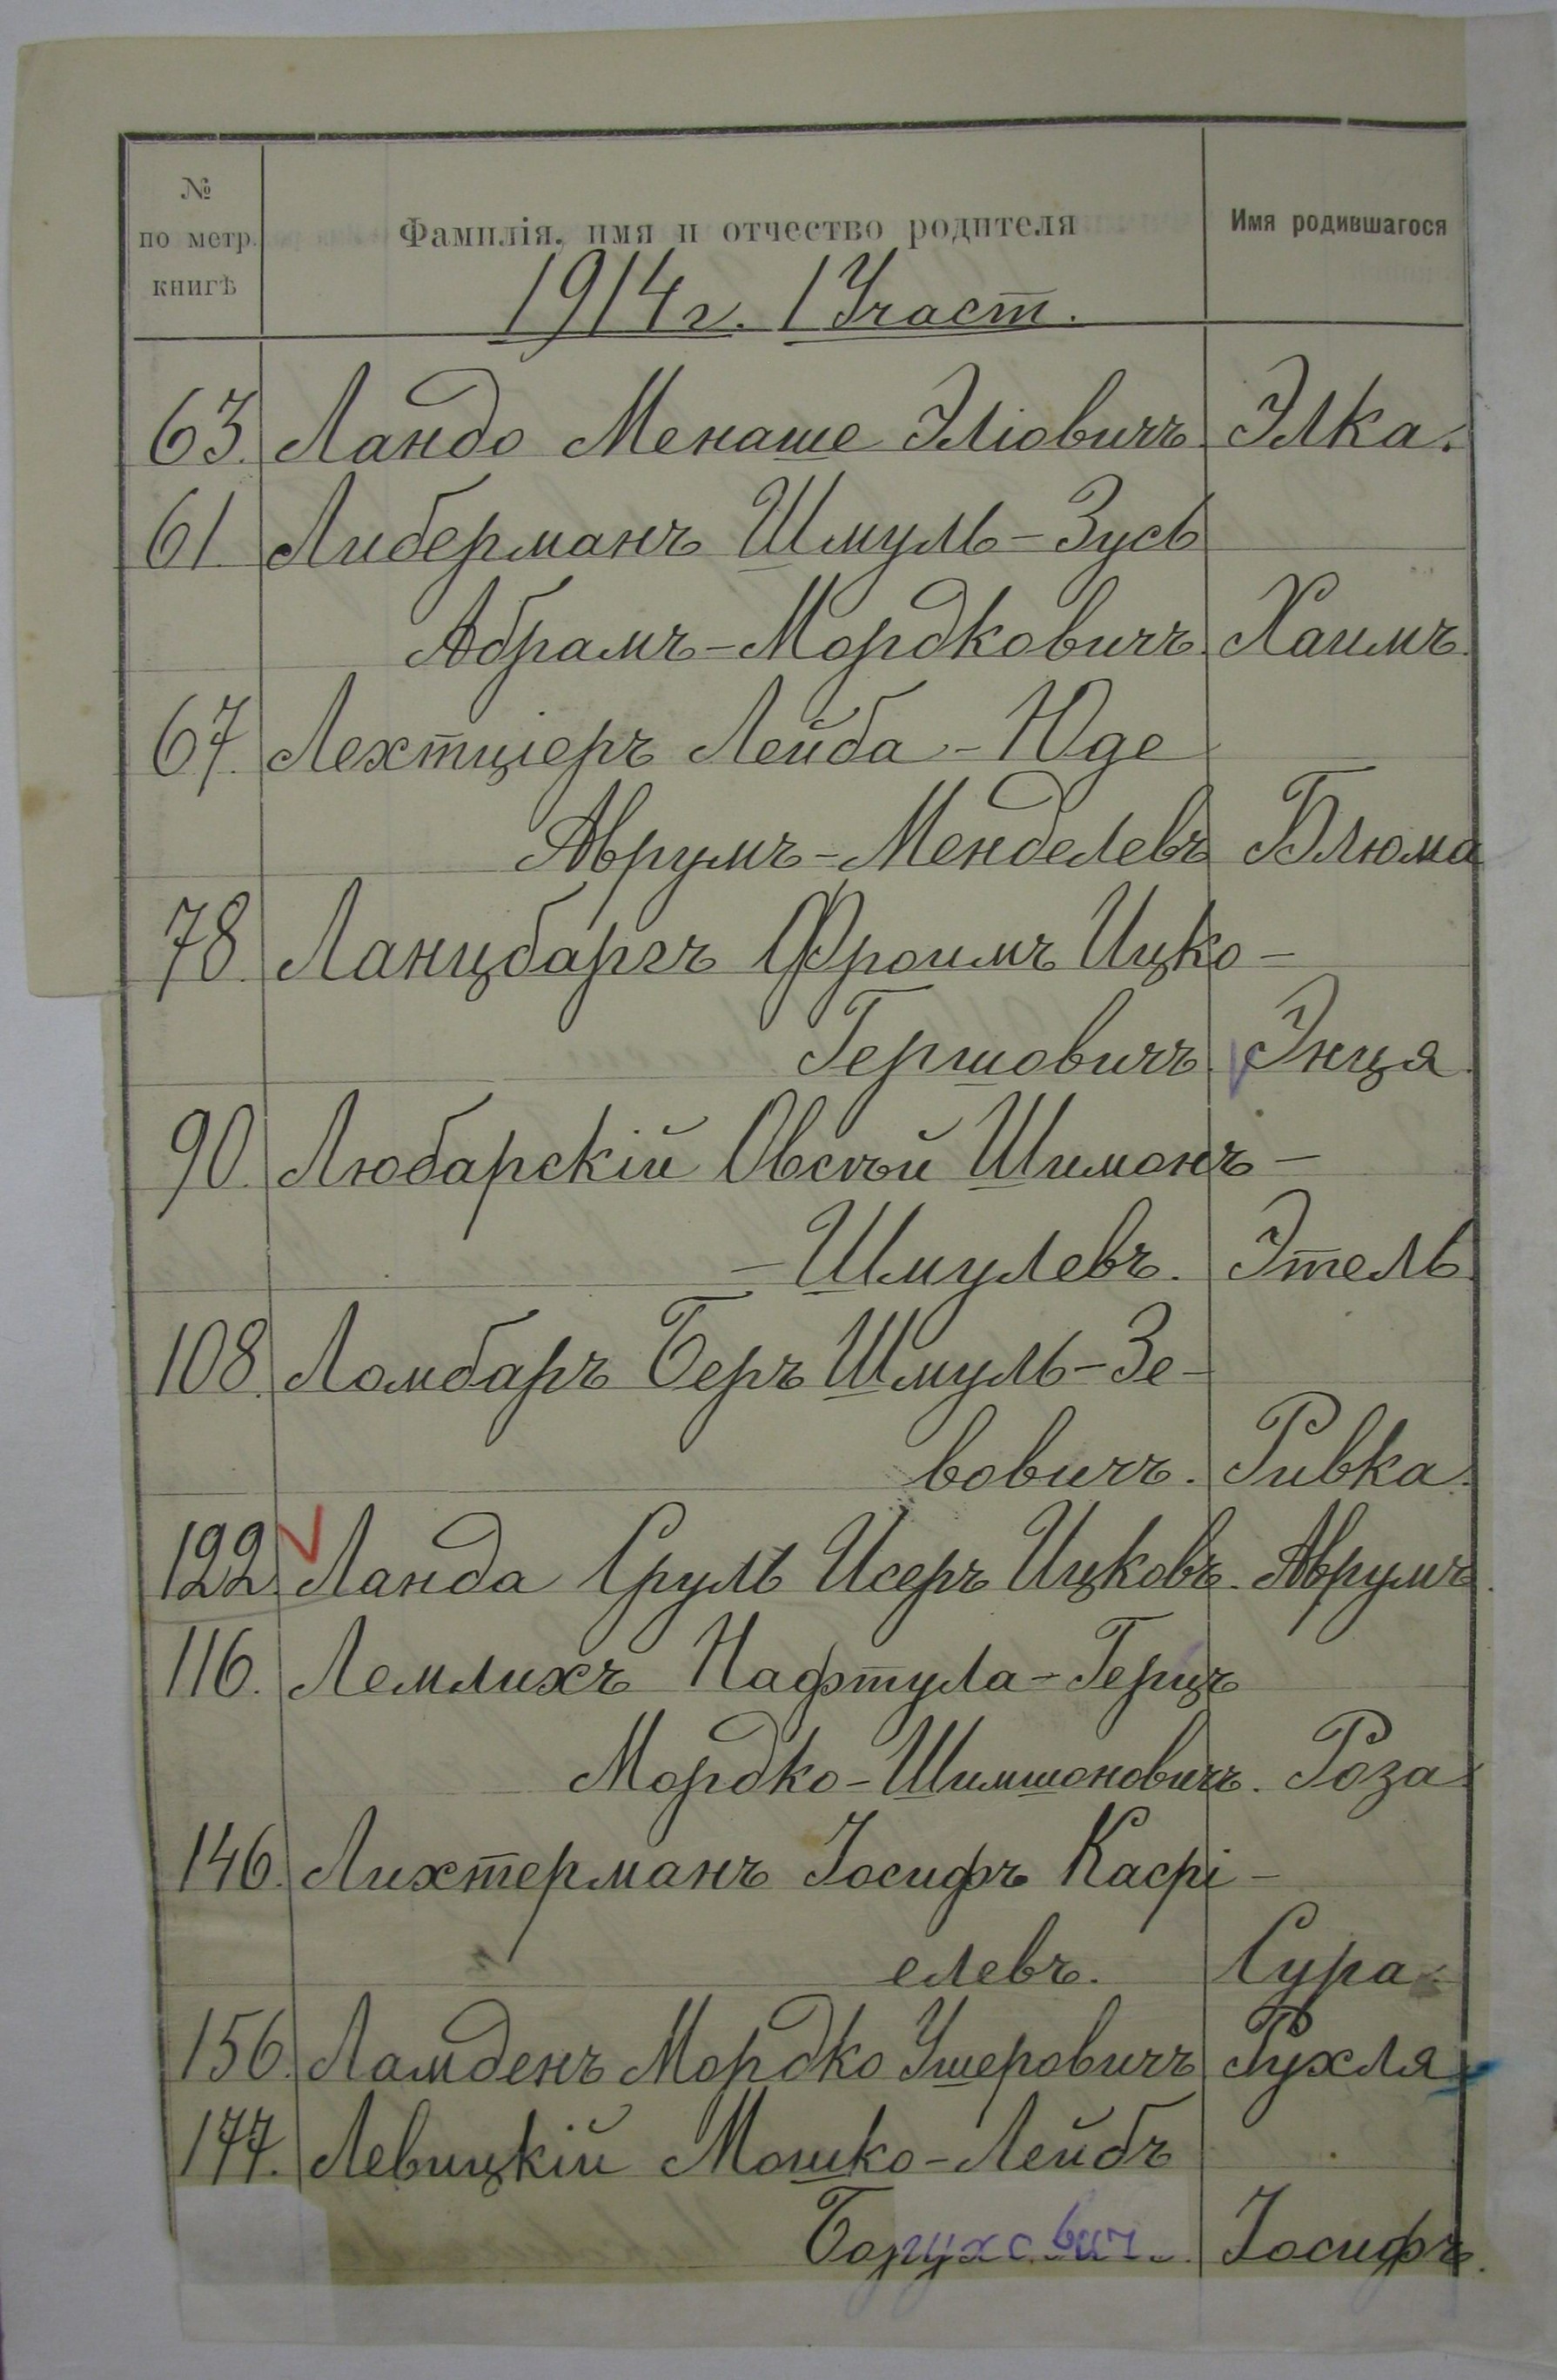 № по метр. книгѣ | Фамилія, имя и отчество родителя | Имя родившагося
1914 г. 1 Участ.
63. Ландо Менаше Эліовичъ. Элка.
61. Либерманъ Шмуль-Зусь
Абрамъ-Мордковичъ. Хаимъ.
67. Лехтціеръ Лейба-Юде
Аврумъ-Менделевъ Блюма
78. Ланцбаргъ Фроимъ Ицко-
Гершовичъ. Энця.
90. Любарскій Овсѣй Шимонъ-
-Шмулевъ. Этель.
108. Ломбаръ Беръ Шмуль-Зе-
вовичъ. Ривка.
122. Ланда Сруль Исеръ Ицковъ. Аврумъ.
116. Лемлихъ Нафтула-Герцъ
Мордко-Шимшоновичъ. Роза.
146. Лихтерманъ Іосифъ Касрі-
елевъ. Сура.
156. Ламденъ Мордко Ушеровичъ Рухля.
177. Левицкій Мошко-Лейбъ
Борухович. Іосифъ.